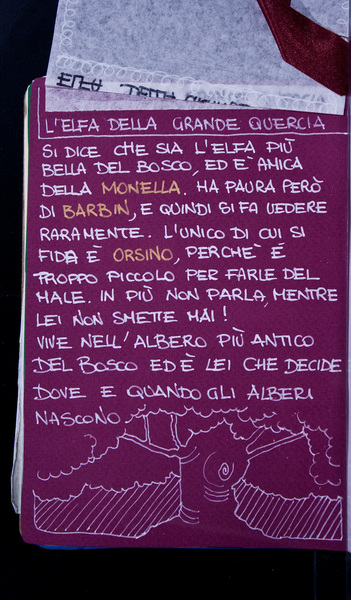 ELFA DELLA
L'ELFA DELLA GRANDE QUERCIA
SI DICE CHE SIA L'ELFA PIÙ
BELLA DEL BOSCO, ED È AMICA
DELLA MONELLA. HA PAURA PERÒ
DI BARBIN, E QUINDI SI FA VEDERE
RARAMENTE. L'UNICO DI CUI SI
FIDA È ORSINO, PERCHÈ È
TROPPO PICCOLO PER FARLE DEL
MALE. IN PIÙ NON PARLA, MENTRE
LEI NON SMETTE MAI!
VIVE NELL'ALBERO PIÙ ANTICO
DEL BOSCO ED È LEI CHE DECIDE
DOVE E QUANDO GLI ALBERI
NASCONO